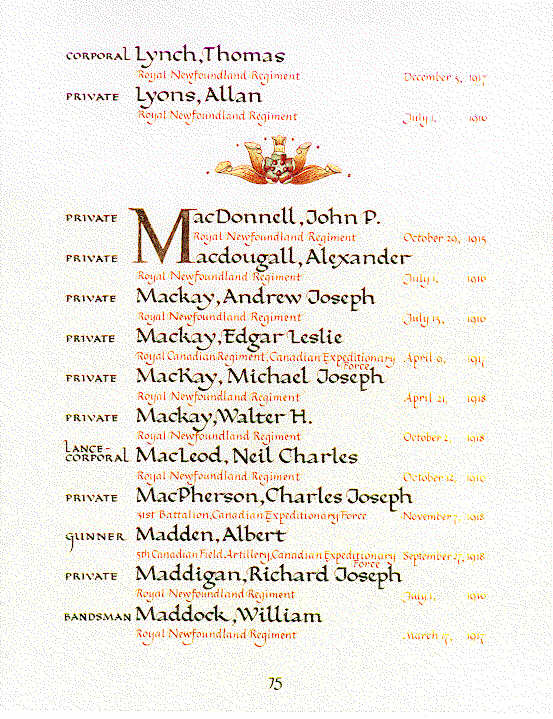 CORPORAL Lynch, Thomas
Royal Newfoundland Regiment December 3, 1917
PRIVATE Lyons, Allan
Royal Newfoundland Regiment July 1, 1916
PRIVATE MacDonnell, John P.
Royal Newfoundland Regiment October 1915
PRIVATE Macdougall, Alexander
Royal Newfoundland Regiment July 1, 1916
PRIVATE Mackay, Andrew Joseph
Royal Newfoundland Regiment July 15, 1916
PRIVATE Mackay, Edgar Leslie
Royal Canadian Regiment, Canadian Expeditionary Force April 9,
PRIVATE MacKay, Michael Joseph
Royal Newfoundland Regiment April 21, 1918
PRIVATE Mackay, Walter H.
Royal Newfoundland Regiment October 2, 1918
LANCE-CORPORAL MacLeod, Neil Charles
Royal Newfoundland Regiment October 12, 1916
PRIVATE MacPherson, Charles Joseph
31st Battalion, Canadian Expeditionary Force November 7, 1918
GUNNER Madden, Albert
5th Canadian Field Artillery, Canadian Expeditionary Force September 1918
PRIVATE Maddigan, Richard Joseph
Royal Newfoundland Regiment July 1, 1916
BANDSMAN Maddock, William
Royal Newfoundland Regiment March 1917
75